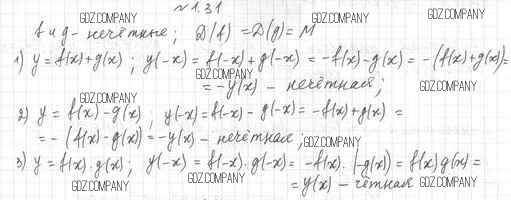 № 1.31
f и g – нечётные; D(f) = D(g) = M
1) y = f(x) + g(x); y(-x) = f(-x) + g(-x) = -f(x) - g(x) = -(f(x) + g(x)) =
= -y(x) – нечётная;
2) y = f(x) - g(x), y(-x) = f(-x) - g(-x) = -f(x) + g(x) =
= -(f(x) - g(x)) = -y(x) – нечётная;
3) y = f(x) · g(x); y(-x) = f(-x) · g(-x) = -f(x) · (-g(x)) = f(x) g(x) =
= y(x) – чётная
GDZ.COMPANY
GDZ.COMPANY
GDZ.COMPANY
GDZ.COMPANY
GDZ.COMPANY
GDZ.COMPANY
GDZ.COMPANY
GDZ.COMPANY
GDZ.COMPANY
GDZ.COMPANY